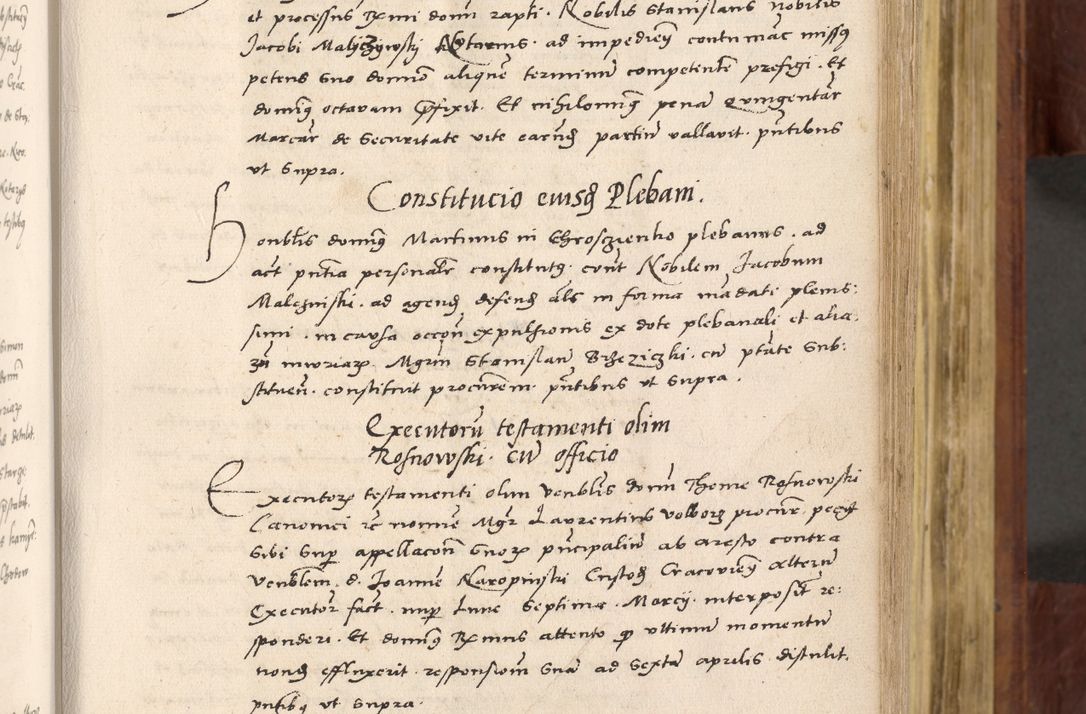 et processus Rmi domi rapti. Nobilis Stanislaus nobilis
Jacobi Malyczywskj Notarius. ad impedien contumac missus
petens suo dommo aliquem terminum competentem prefigi. Et
dominus octavam prefixit. Et nihilominus pena quingentar
Marcar de securitate vite earund partium vallavit. pntibus
ut supra.
Constitucio eiusd Plebani.
Honblis dominus Martinus in Chroszienko plebanus. ad
act pntia personaler constitutus. cont Nobilem Jacobum
Malczinski. ad agend defend als in forma mandati plenis:
simi. in causa occon expulsionis ex dote plebanali et alia:
iniuriar. Mgrm Stanislaum Brzeziczki. cum ptate sub:
stituen. constituit procurem. pntibus ut supra.
Executoru testamenti olim
Rosnowski. cum officio
Executor testamenti olim venblis domi Thome Rosnowski
Canonici et nomine Mgr Laurentius Volborz procur. petyt
sibi super appellacon suor principaliu ab aresto contra
venblem. d. Joanne Karopinski Custod Cracovien alteru
Executor fact. nuper Lune septima. Marcij. interposit re:
sponderi. Et dominus Rmus attento quod ultimum momentu
nond effluxerit. responsiom sua ad sexta aprilis distulit.
pntibus ut supra.